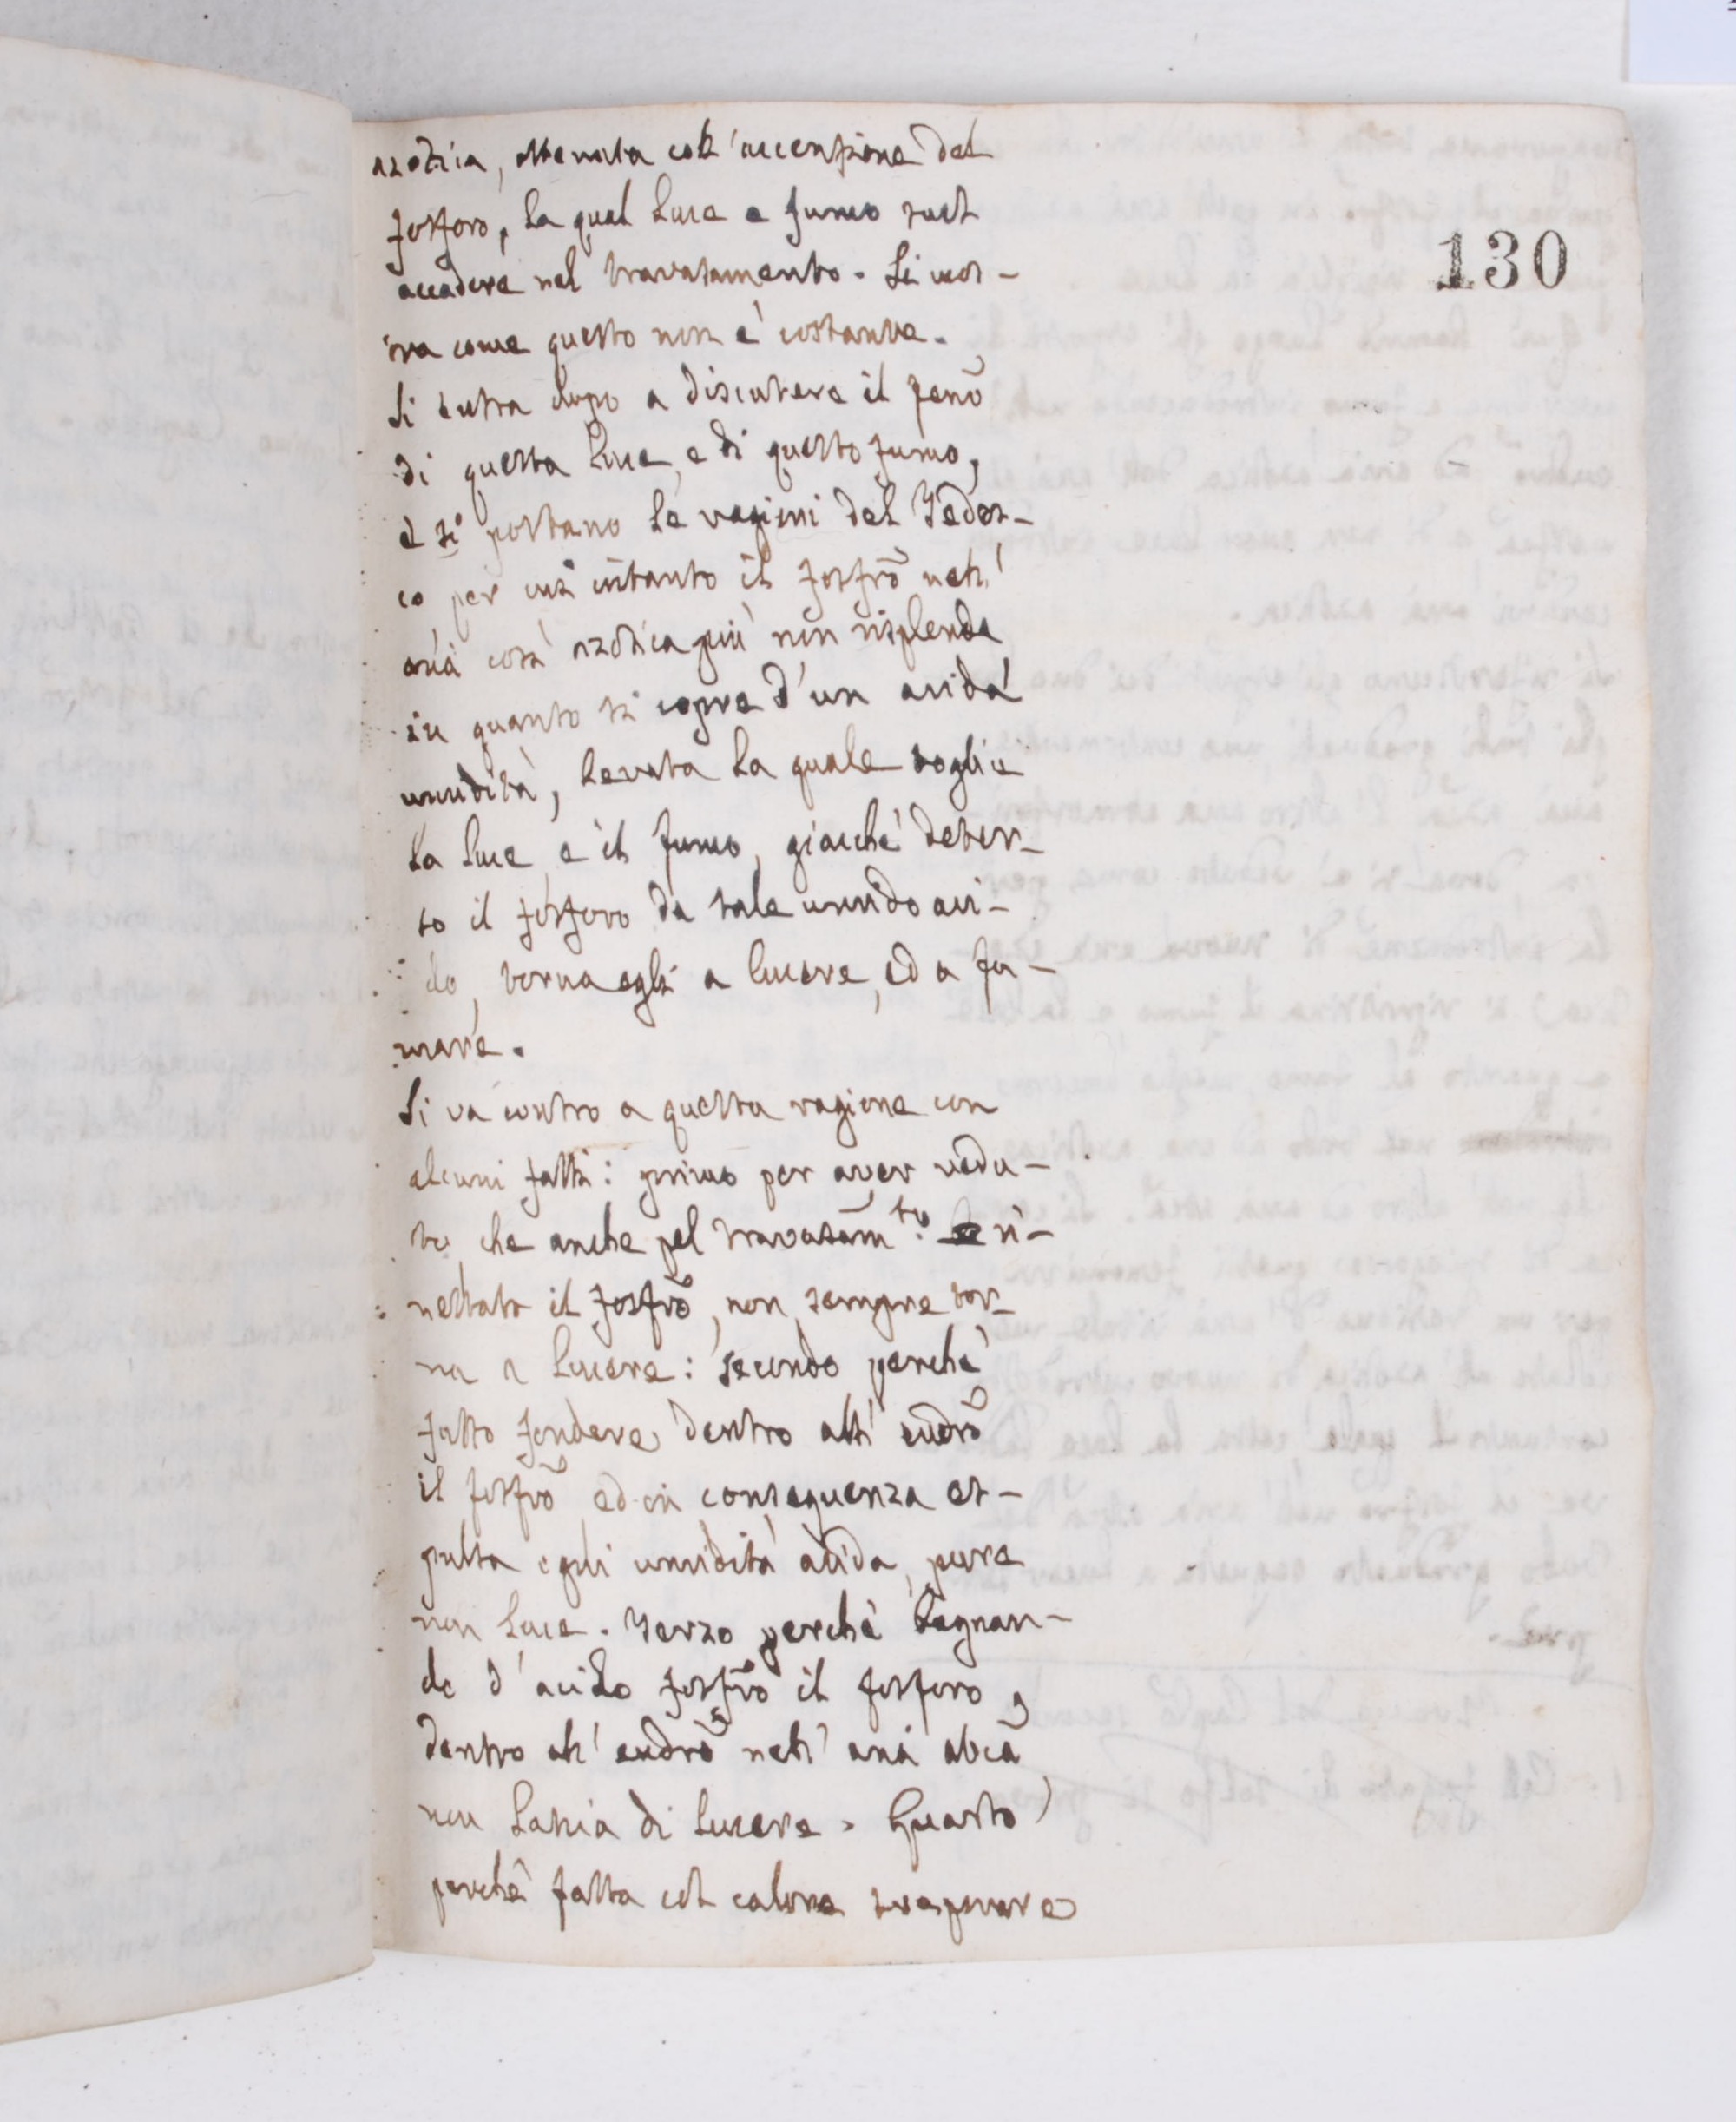 130
azotica, ottenuta coll'accensione del
fosforo, la qual luce e fumo suol
accadere nel travasamento. Si mos-
tra come questo non è costante.
Si entra dopo a discutere il fenõ
di questa luce, e di questo fumo,
e si portano le ragioni del Tedes-
co per cui intanto il fosfrõ nell'
aria così azotica più non risplenda
in quanto si copre d'un acida
umidità, levata la quale soglie
la luce e il fumo, giacchè deter-
so il fosforo da tale umido aci-
do, torna egli a lucere, ed a fu-
mare.
Si va contro a questa ragione con
alcuni fatti: primo per aver vedu-
to che anche pel travasam.to ri-
nettato il fosfrõ, non sempre tor-
na a lucere: secondo perchè
fatto fondere dentro all' eudrõ
il fosfrõ ed in conseguenza es-
pulsa ogni umidità acida, pure
non luce. Terzo perchè bagnan-
do d'acido fosfrõ il fosforo,
dentro all' eudrõ nell' aria
non lascia di lucere. Quarto
perchè fatta col calore svaporare